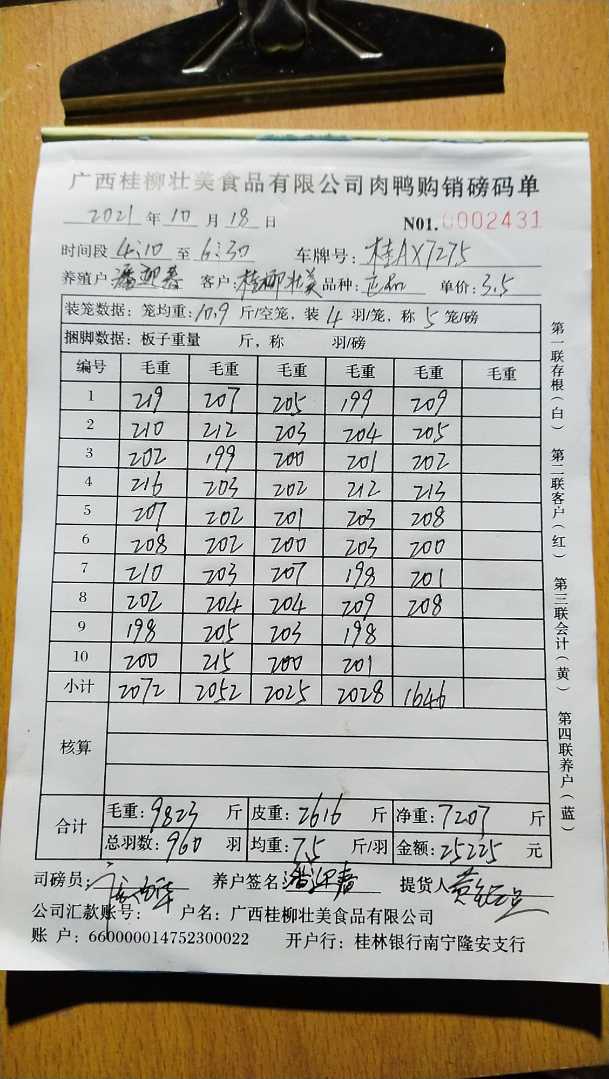 广西桂柳壮美食品有限公司肉鸭购销磅码单
2021 年 10 月 18 日 N01. 0002431
时间段 4:10 至 6:30 车牌号: 桂AX7275
养殖户: 潘迎春 客户: 桂柳壮美 品种: 正品 单价: 3.5
装笼数据: 笼均重: 10.9 斤/空笼, 装 4 羽/笼, 称 5 笼/磅
捆脚数据: 板子重量 斤, 称 羽/磅
编号 毛重 毛重 毛重 毛重 毛重 毛重
1 219 207 205 199 209
2 210 212 203 204 205
3 202 199 200 201 202
4 216 203 202 212 213
5 207 202 201 203 208
6 208 202 200 203 200
7 210 203 207 198 201
8 202 204 204 209 208
9 198 205 203 198
10 200 215 200 201
小计 2072 2052 2025 2028 1646
核算
合计 毛重: 9823 斤 皮重: 2616 斤 净重: 7207 斤
总羽数: 960 羽 均重: 7.5 斤/羽 金额: 25225 元
司磅员: 养户签名: 潘迎春 提货人
公司汇款账号: 户名: 广西桂柳壮美食品有限公司
账 户: 660000014752300022 开户行: 桂林银行南宁隆安支行
第一联存根(白) 第二联客户(红) 第三联会计(黄) 第四联养户(蓝)